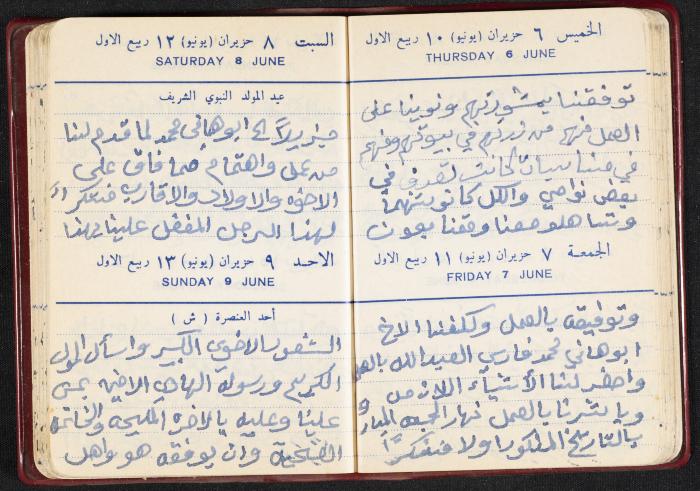 الخميس ٦ حزيران (يونيو) ١٠ ربيع الاول
THURSDAY 6 JUNE
توفقنا بمشورتهم ونوينا على
العمل فمنهم من زرتهم في بيوتهم ومنهم
في مناسبات كانت تصدف في
بعض نواحي والكل كانو
معنا وفقنا بعون
الجمعة ٧ حزيران (يونيو) ١١ ربيع الاول
FRIDAY 7 JUNE
وتوفيقه بالعمل وكلفنا الاخ
ابوهاني محمد فارس العبدالله بالعمل
واحضر لنا الأشياء اللازمه
وباشرنا بالعمل نهار الجمعه
بالتاريخ المذكور اولا فشكراً
السبت ٨ حزيران (يونيو) ١٢ ربيع الاول
SATURDAY 8 JUNE
عيد المولد النبوي الشريف
جزيلاً الى ابوهاني محمد لما قدم لنا
من عمل واهتمام مما فاق على
الاخوه والاولاد والاقارب فشكراً
لهذا الرجل المفضل علينا بهذا
الاحد ٩ حزيران (يونيو) ١٣ ربيع الاول
SUNDAY 9 JUNE
أحد العنصرة ( ش )
الشعور الاخوي الكبير واسأل المولى
الكريم ورسوله الهادي الامين يمن
علينا وعليه بالاخره المليحه والخاتمه
وان يوفقه هو واهل